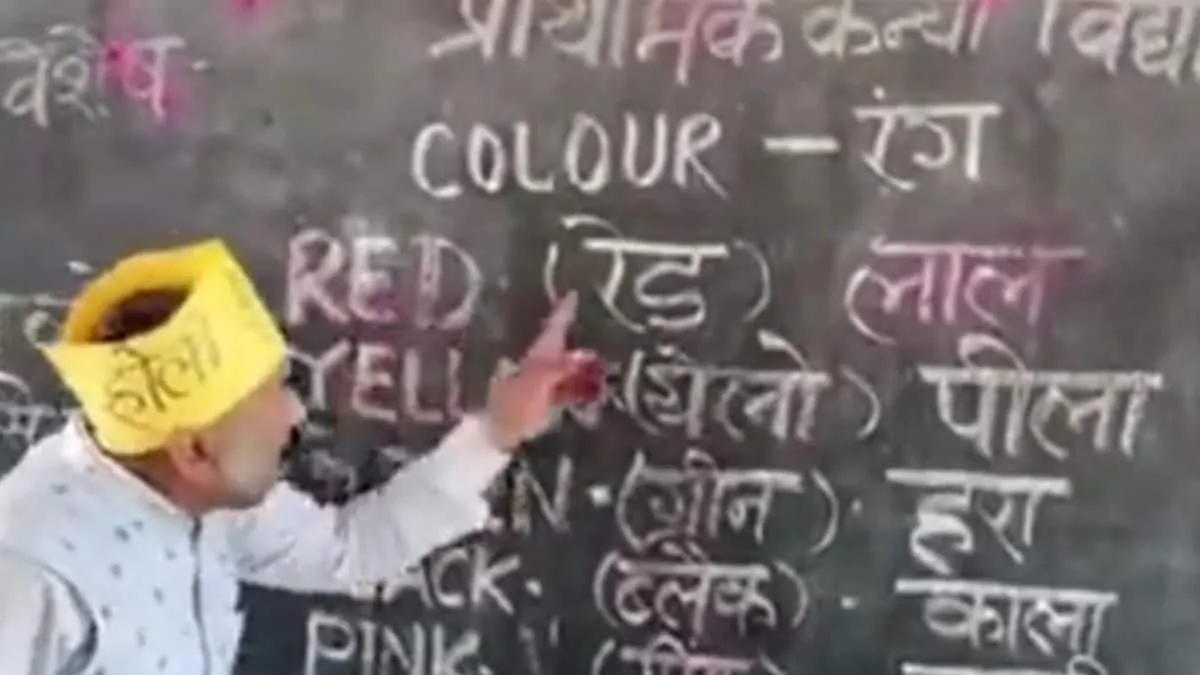 प्राथमिक कन्या विद्या
विशेष
COLOUR - रंग
RED (रेड) लाल
होली
YELL (येलो) पीला
N - (ग्रीन) हरा
ACK - (ब्लैक) - काला
PINK